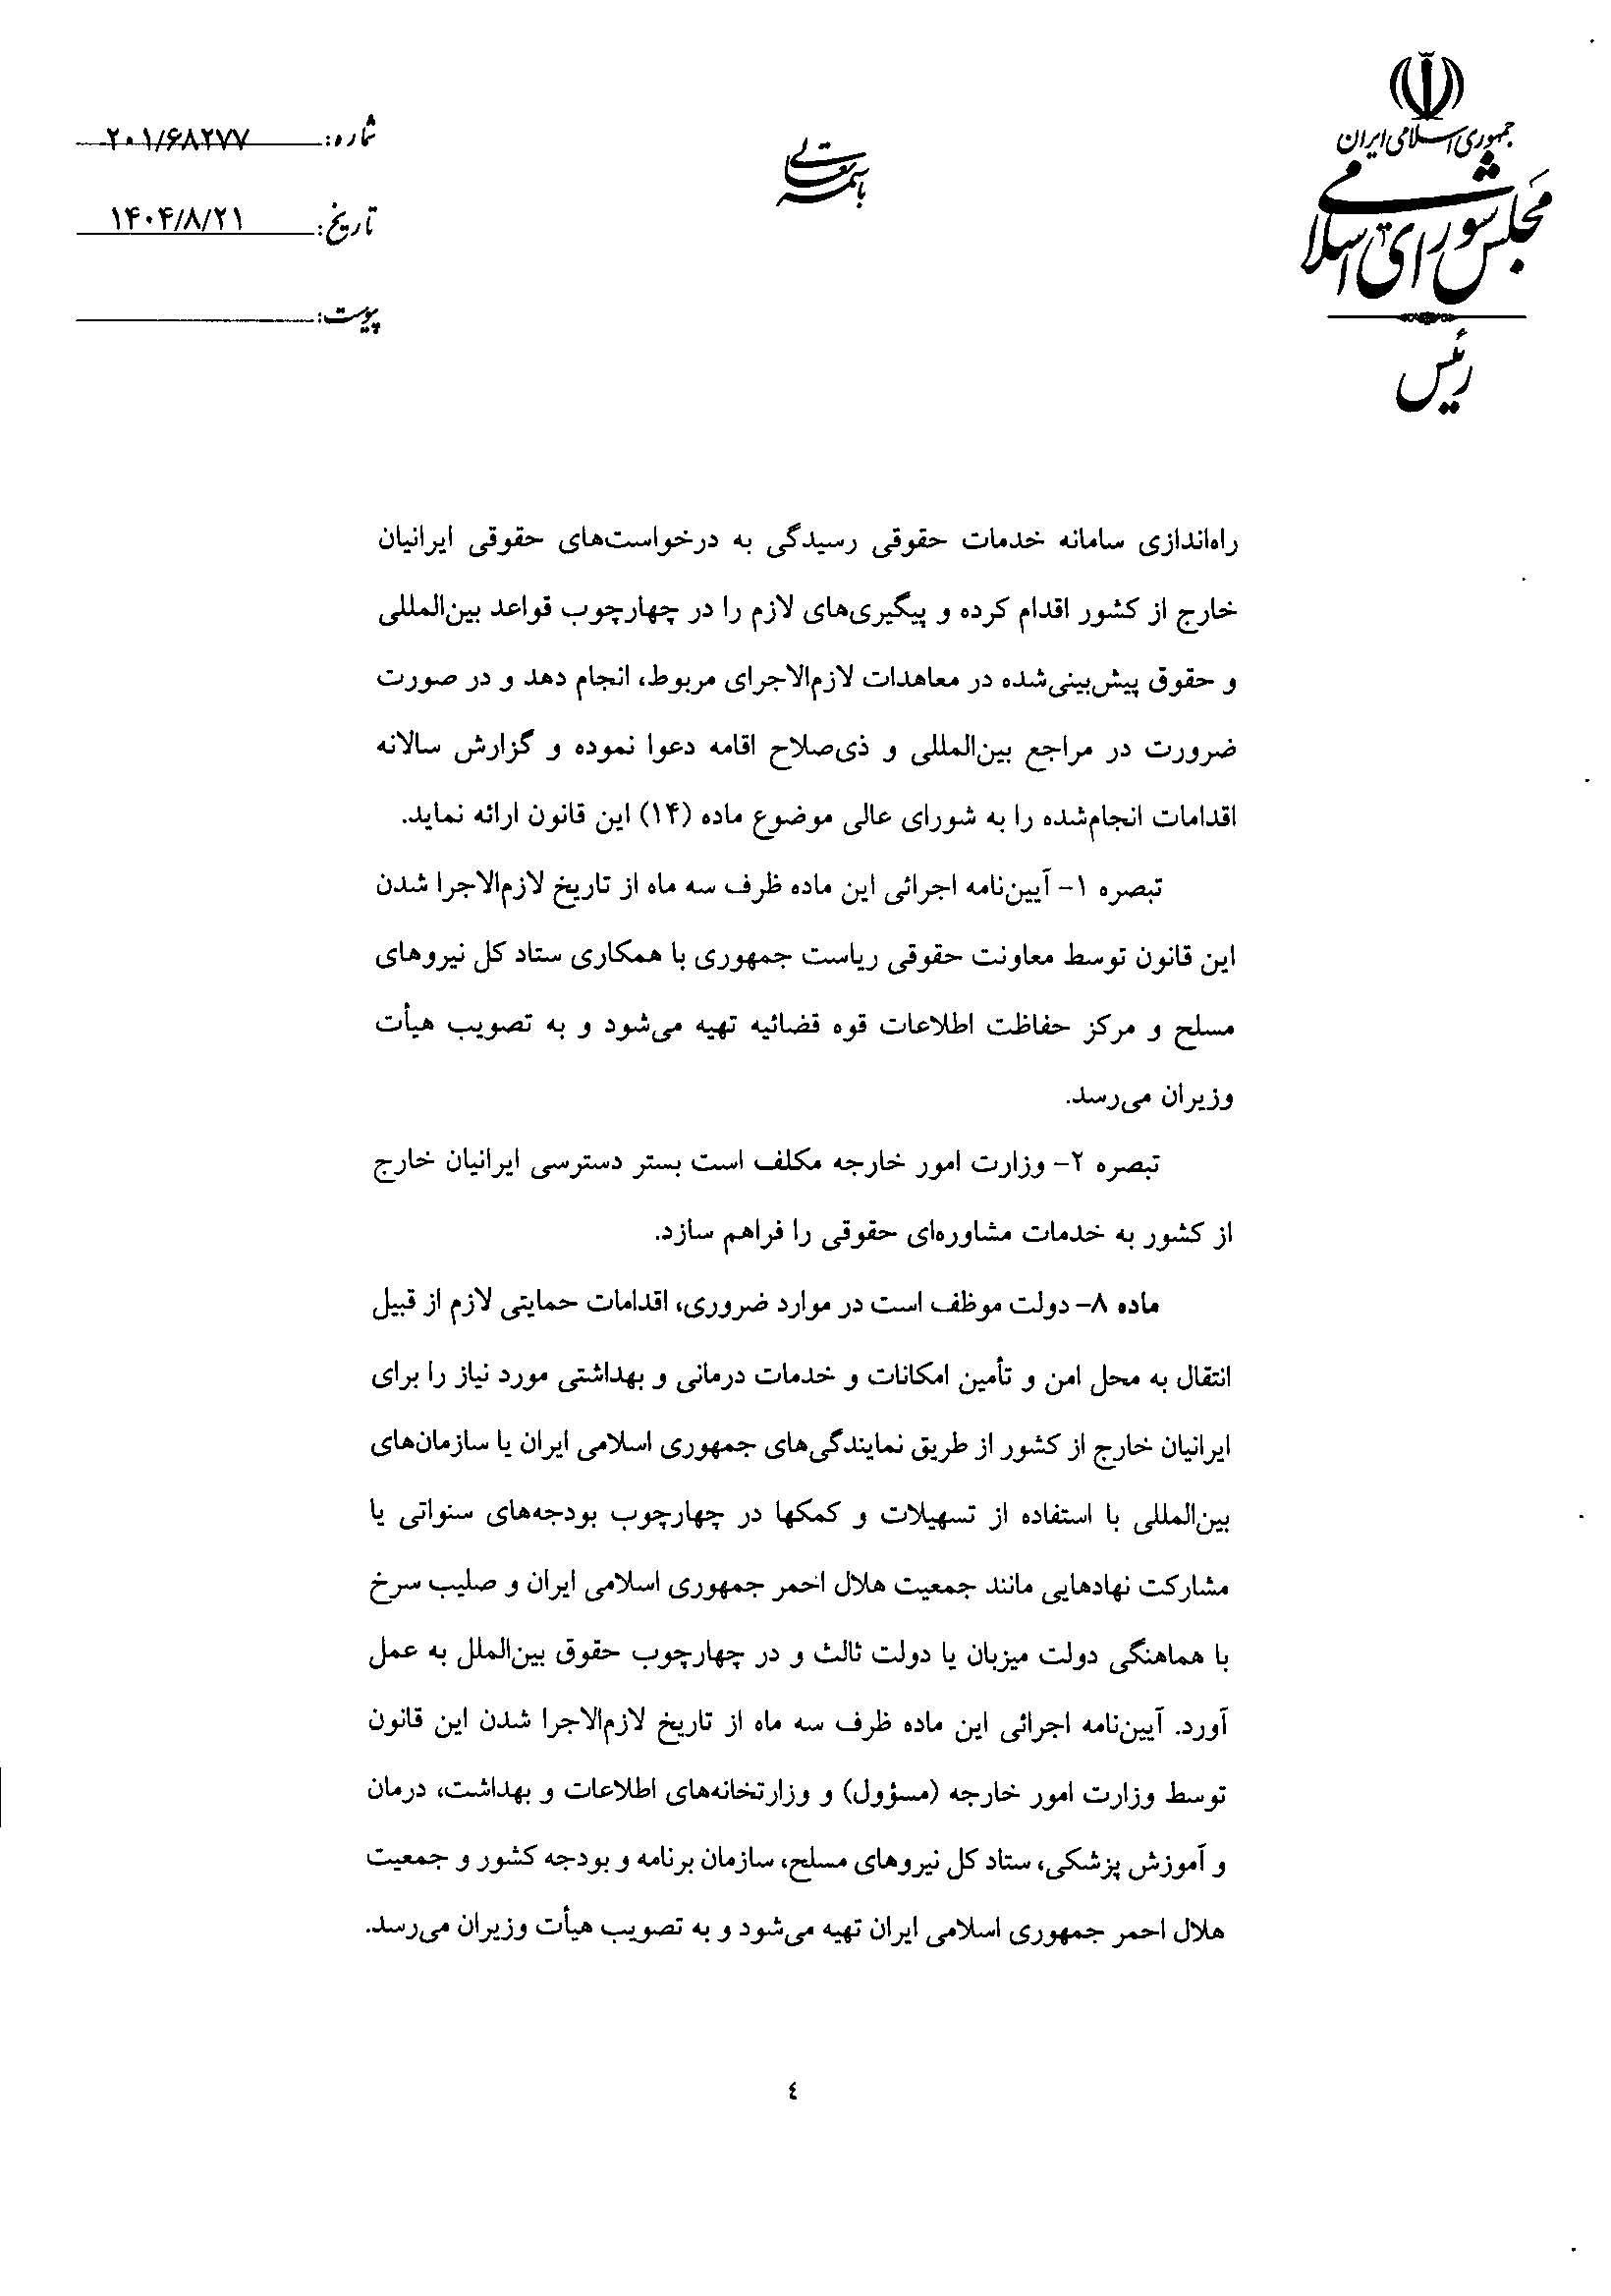 جمهوری اسلامی ایران
مجلس شورای اسلامی
رئیس
باسمه تعالی
شماره: ۲۰۱/۶۸۲۷۷
تاریخ: ۱۴۰۴/۸/۲۱
پیوست:
راه‌اندازی سامانه خدمات حقوقی رسیدگی به درخواست‌های حقوقی ایرانیان
خارج از کشور اقدام کرده و پیگیری‌های لازم را در چهارچوب قواعد بین‌المللی
و حقوق پیش‌بینی‌شده در معاهدات لازم‌الاجرای مربوط، انجام دهد و در صورت
ضرورت در مراجع بین‌المللی و ذی‌صلاح اقامه دعوا نموده و گزارش سالانه
اقدامات انجام‌شده را به شورای عالی موضوع ماده (۱۴) این قانون ارائه نماید.
تبصره ۱- آیین‌نامه اجرائی این ماده ظرف سه ماه از تاریخ لازم‌الاجرا شدن
این قانون توسط معاونت حقوقی ریاست جمهوری با همکاری ستاد کل نیروهای
مسلح و مرکز حفاظت اطلاعات قوه قضائیه تهیه می‌شود و به تصویب هیأت
وزیران می‌رسد.
تبصره ۲- وزارت امور خارجه مکلف است بستر دسترسی ایرانیان خارج
از کشور به خدمات مشاوره‌ای حقوقی را فراهم سازد.
ماده ۸- دولت موظف است در موارد ضروری، اقدامات حمایتی لازم از قبیل
انتقال به محل امن و تأمین امکانات و خدمات درمانی و بهداشتی مورد نیاز را برای
ایرانیان خارج از کشور از طریق نمایندگی‌های جمهوری اسلامی ایران یا سازمان‌های
بین‌المللی با استفاده از تسهیلات و کمکها در چهارچوب بودجه‌های سنواتی یا
مشارکت نهادهایی مانند جمعیت هلال احمر جمهوری اسلامی ایران و صلیب سرخ
با هماهنگی دولت میزبان یا دولت ثالث و در چهارچوب حقوق بین‌الملل به عمل
آورد. آیین‌نامه اجرائی این ماده ظرف سه ماه از تاریخ لازم‌الاجرا شدن این قانون
توسط وزارت امور خارجه (مسؤول) و وزارتخانه‌های اطلاعات و بهداشت، درمان
و آموزش پزشکی، ستاد کل نیروهای مسلح، سازمان برنامه و بودجه کشور و جمعیت
هلال احمر جمهوری اسلامی ایران تهیه می‌شود و به تصویب هیأت وزیران می‌رسد.
٤